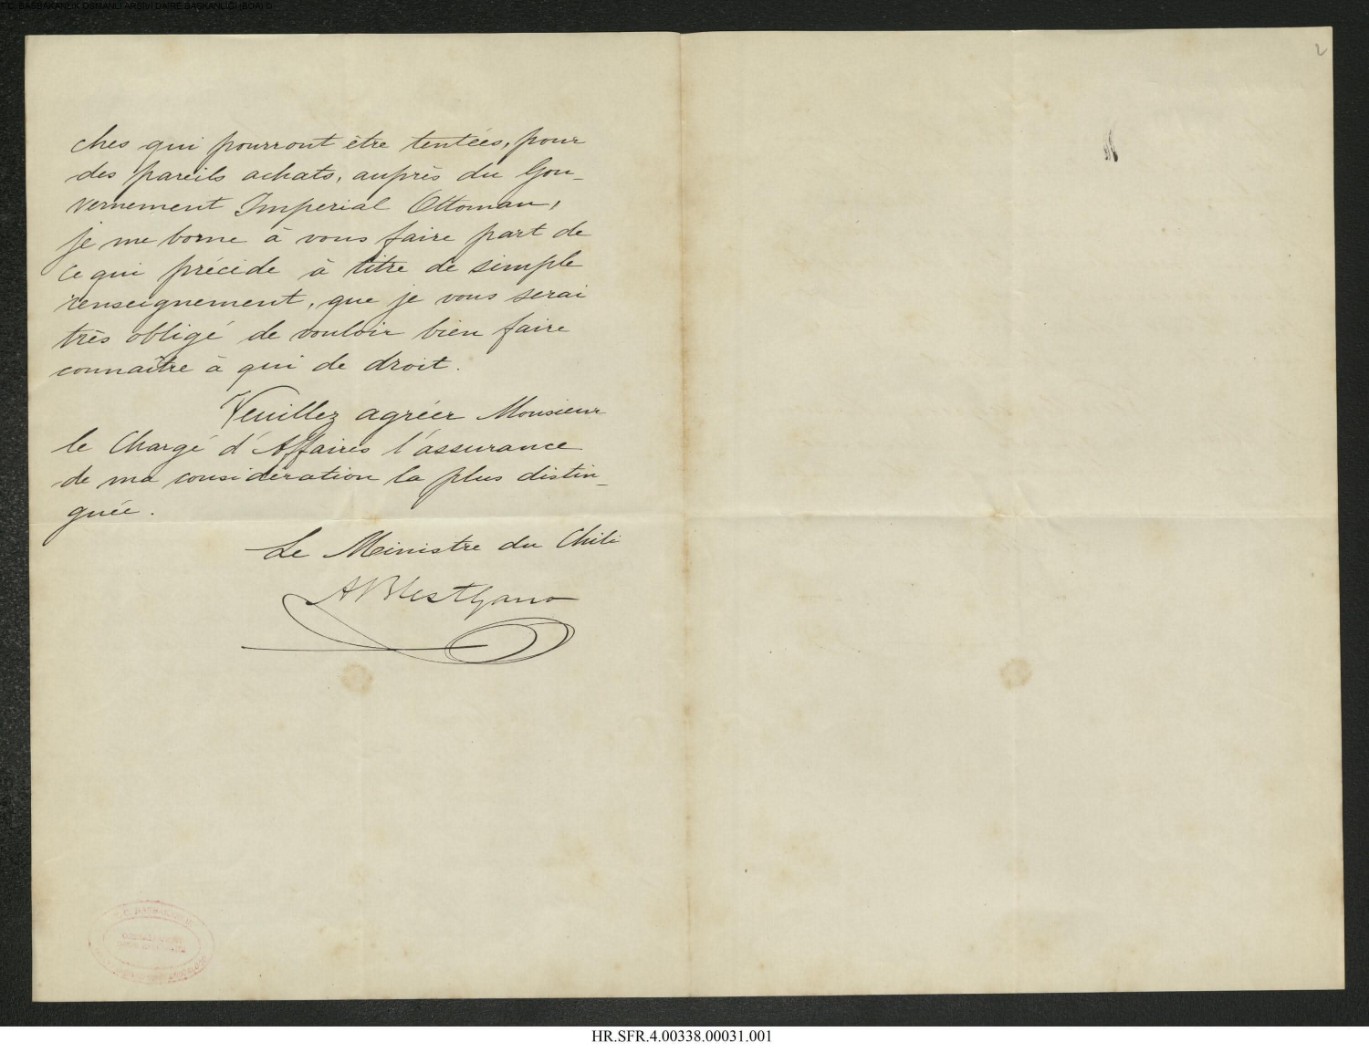 T.C. BAŞBAKANLIK OSMANLI ARŞİVİ DAİRE BAŞKANLIĞI (BOA)
2
ches qui pourront être tentées, pour
des pareils achats, auprès du Gou-
vernement Imperial Ottoman,
je me borne à vous faire part de
ce qui précède à titre de simple
renseignement, que je vous serai
très obligé de vouloir bien faire
connaître à qui de droit.
Veuillez agréer Monsieur
le Chargé d'Affaires l'assurance
de ma consideration la plus distin-
guée.
Le Ministre du Chili
A Blest Gana
HR.SFR.4.00338.00031.001